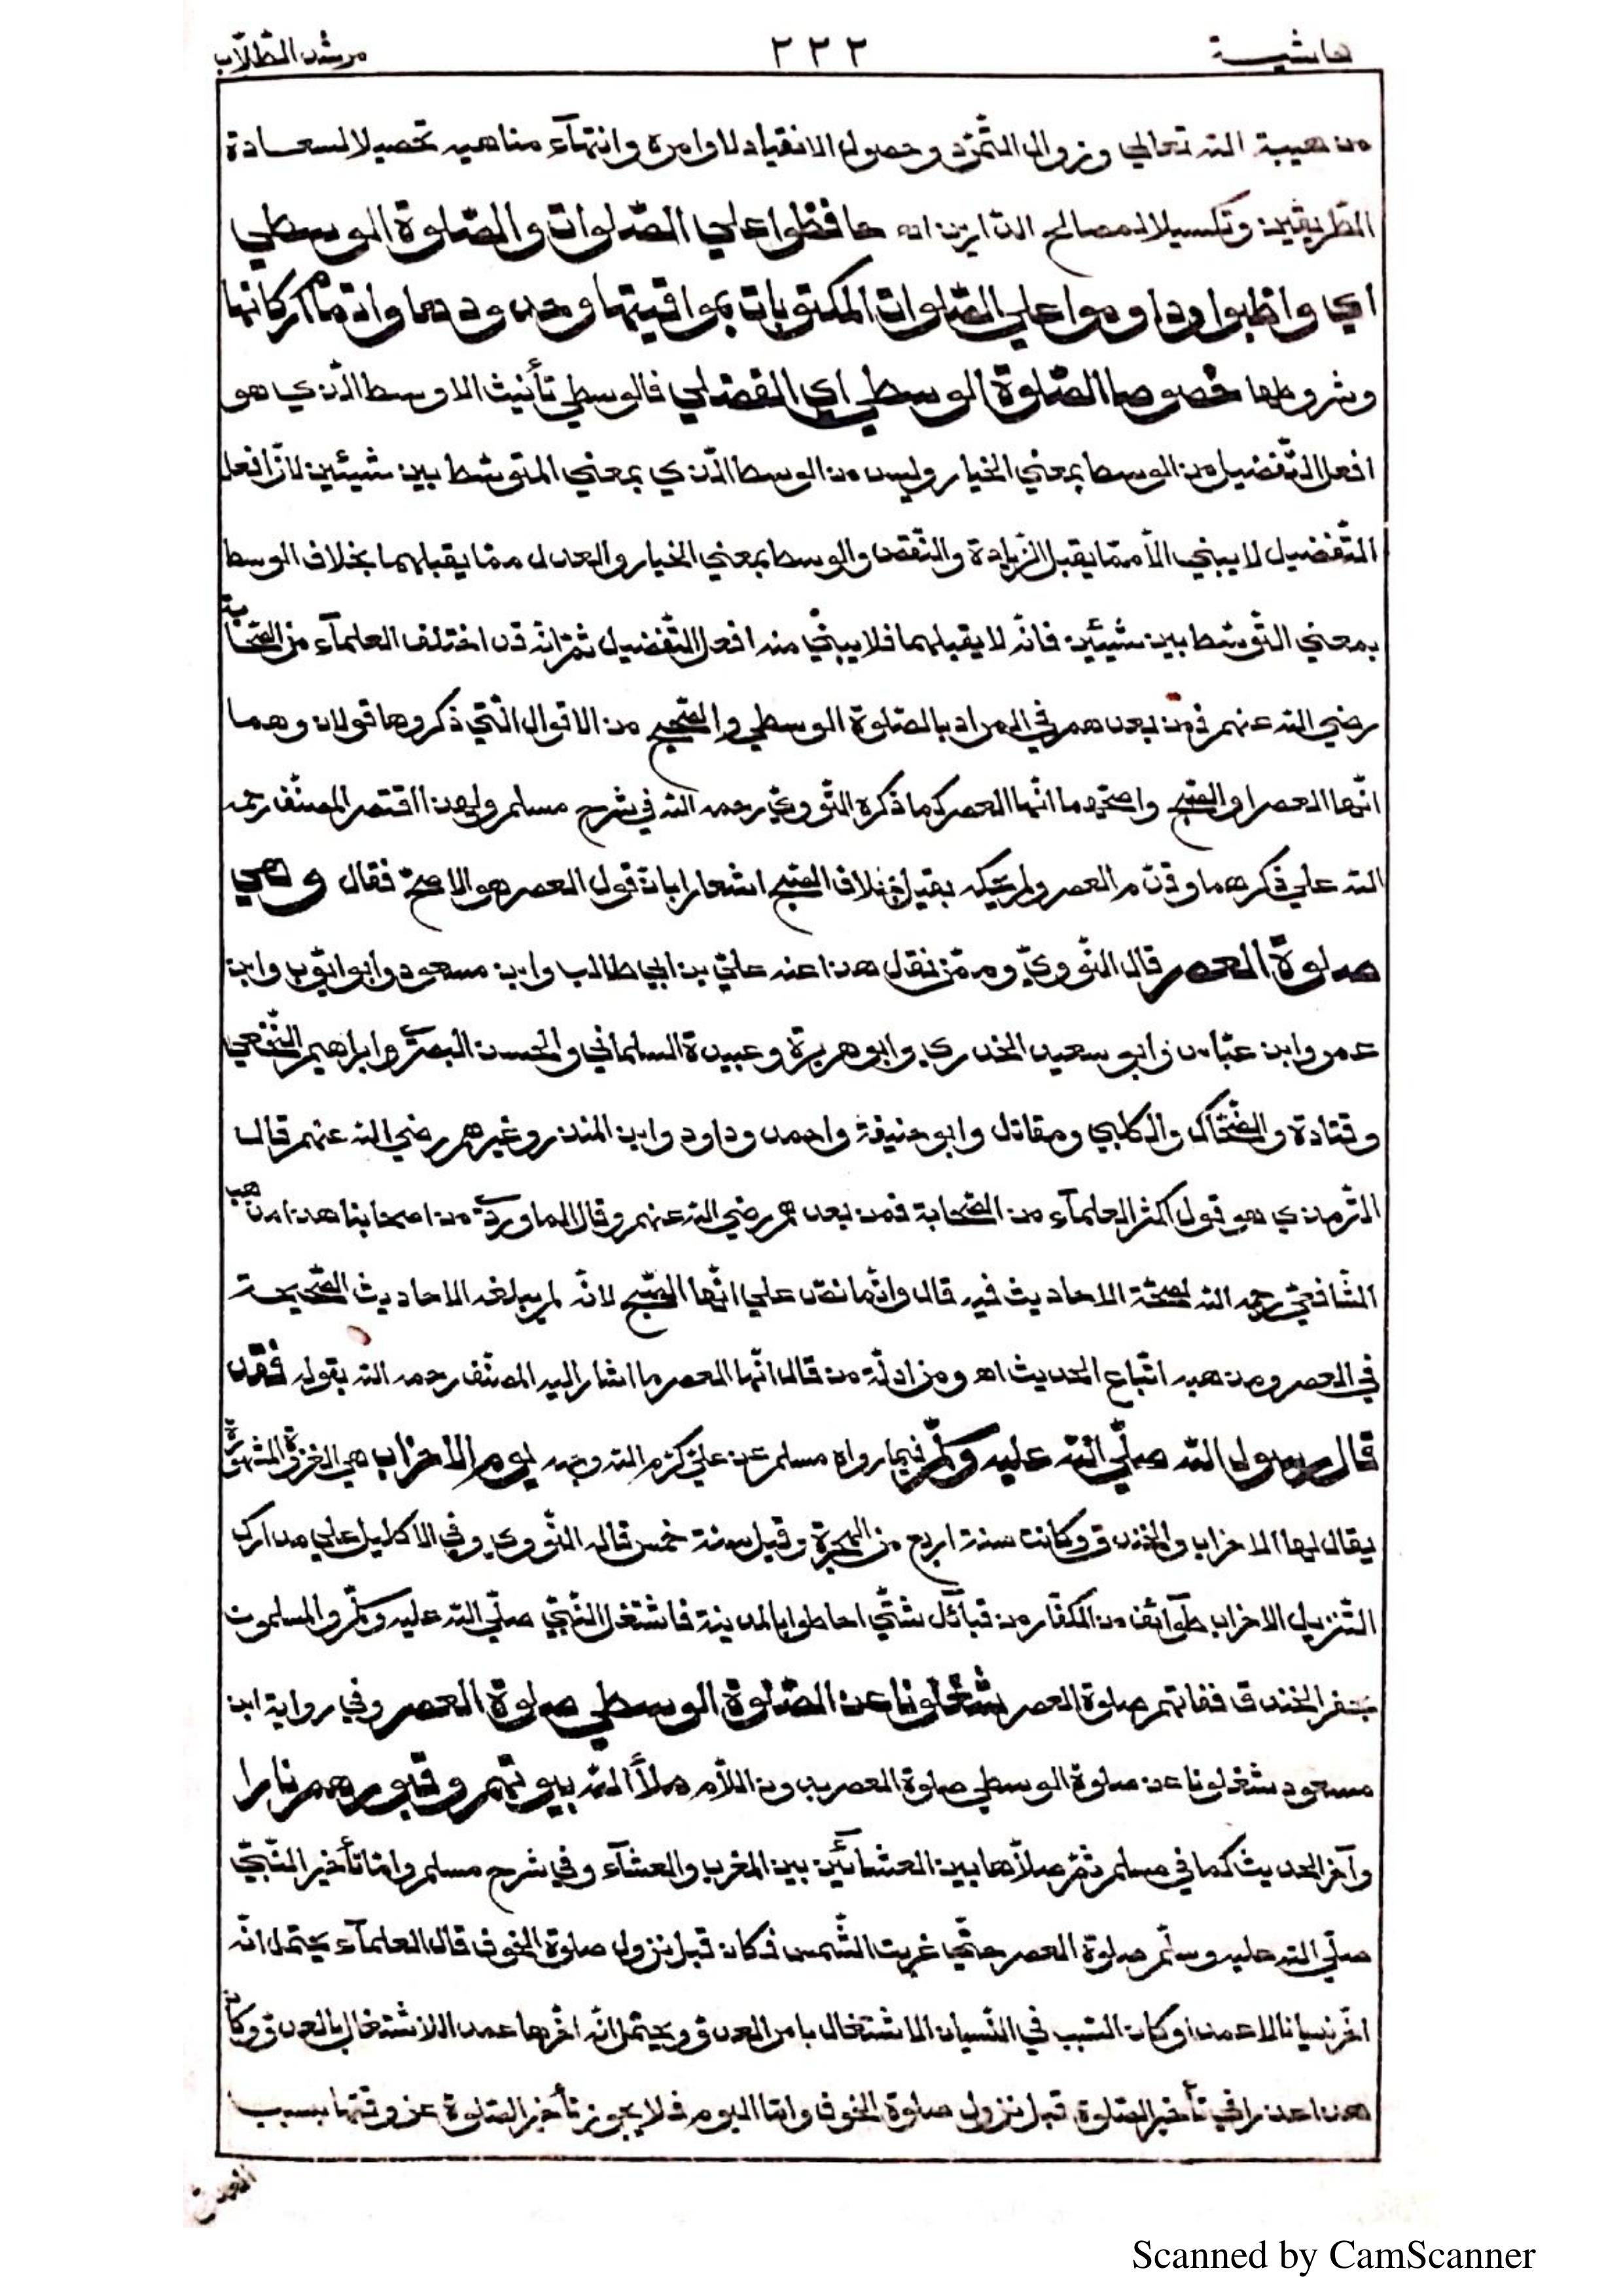 حاشية ٢٢٢ مرشد الطّلّاب
من هيبة الله تعالي وزوال التّمرّد وحصول الانقياد لاوامره وانتهآء مناهيه تحصيلا لسعادة
الطّريقين وتكسيلا لمصالح الدّارين اه حافظوا علي الصّلوات والصّلوة الوسطي
اي واظبوا وداوموا علي الصّلوات المكتوبات بمواقيتها وحدودها واتمام اركانها
وشروطها خصوصا الصّلوة الوسطي اي الفضلي فالوسطي تأنيث الاوسط الّذي هو
افعل التّفضيل من الوسط بمعني الخيار وليس من الوسط الّذي بمعني المتوسّط بين شيئين لانّ افعل
التّفضيل لا يبني الّا ممّا يقبل الزّيادة والنّقص والوسط بمعني الخيار والعدل ممّا يقبلهما بخلاف الوسط
بمعني التّوسّط بين شيئين فانّه لا يقبلهما فلا يبني منه افعل التّفضيل ثمّ انّه قد اختلف العلمآء من الصّحابة
رضي الله عنهم فمن بعدهم في المراد بالصّلوة الوسطي والصّحيح من الاقوال الّتي ذكروها قولان وهما
انّها العصر او الصّبح واصحّهما انّها العصر كما ذكره النّوويّ رحمه الله في شرح مسلم ولهذا اقتصر المصنّف رحمه
الله علي ذكرهما وقدّم العصر ولم يحكه بقيل بخلاف الصّبح اشعارا بانّ قول العصر هو الاصحّ فقال وهي
صلوة العصر قال النّوويّ وممّن نقل هذا عنه عليّ بن ابي طالب وابن مسعود وابو ايّوب وابن
عمر وابن عبّاس وابو سعيد الخدري وابو هريرة وعبيدة السلماني والحسن البصريّ وابراهيم النّخعي
وقتادة والضّحّاك والكلبي ومقاتل وابو حنيفة واحمد وداود وابن المنذر وغيرهم رضي الله عنهم قال
التّرمذي هو قول اكثر العلمآء من الصّحابة فمن بعدهم رضي الله عنهم وقال الماورديّ من اصحابنا هذا مذهب
الشّافعيّ رحمه الله لصحّة الاحاديث فيه قال وانّما نصّ علي انّها الصّبح لانّه لم يبلغه الاحاديث الصّحيحة
في العصر ومذهبه اتّباع الحديث اه ومن ادلّة من قال انّها العصر ما اشار اليه المصنّف رحمه الله بقوله فقد
قال رسول الله صلّي الله عليه وسلّم فيما رواه مسلم عن عليّ كرّم الله وجهه يوم الاحزاب هي الغزوة المشهورة
يقال لها الاحزاب والخندق وكانت سنة اربع من الهجرة وقيل سنة خمس قاله النّووي وفي الاكليل علي مدارك
التّنزيل الاحزاب طوآئف من الكفّار من قبآئل شتّي احاطوا بالمدينة فاشتغل النّبيّ صلّي الله عليه وسلّم والمسلمون
بحفر الخندق ففاتهم صلوة العصر شغلونا عن الصّلوة الوسطي صلوة العصر وفي رواية ابن
مسعود شغلونا عن صلوة الوسطي صلوة العصر بدون اللّام ملأ الله بيوتهم وقبورهم نارا
وآخر الحديث كما في مسلم ثمّ صلّاها بين العشآئين بين المغرب والعشآء وفي شرح مسلم وامّا تأخير النّبيّ
صلّي الله عليه وسلّم صلوة العصر حتّي غربت الشّمس فكان قبل نزول صلوة الخوف قال العلمآء يحتمل انّه
اخّر نسيانا لا عمدا وكان السّبب في النّسيان الاشتغال بامر العدوّ ويحتمل انّه اخّرها عمدا للاشتغال بالعدوّ وكان
هذا عذرا في تأخير الصّلوة قبل نزول صلوة الخوف وامّا اليوم فلا يجوز تأخير الصّلوة عن وقتها بسبب
العدوّ
Scanned by CamScanner